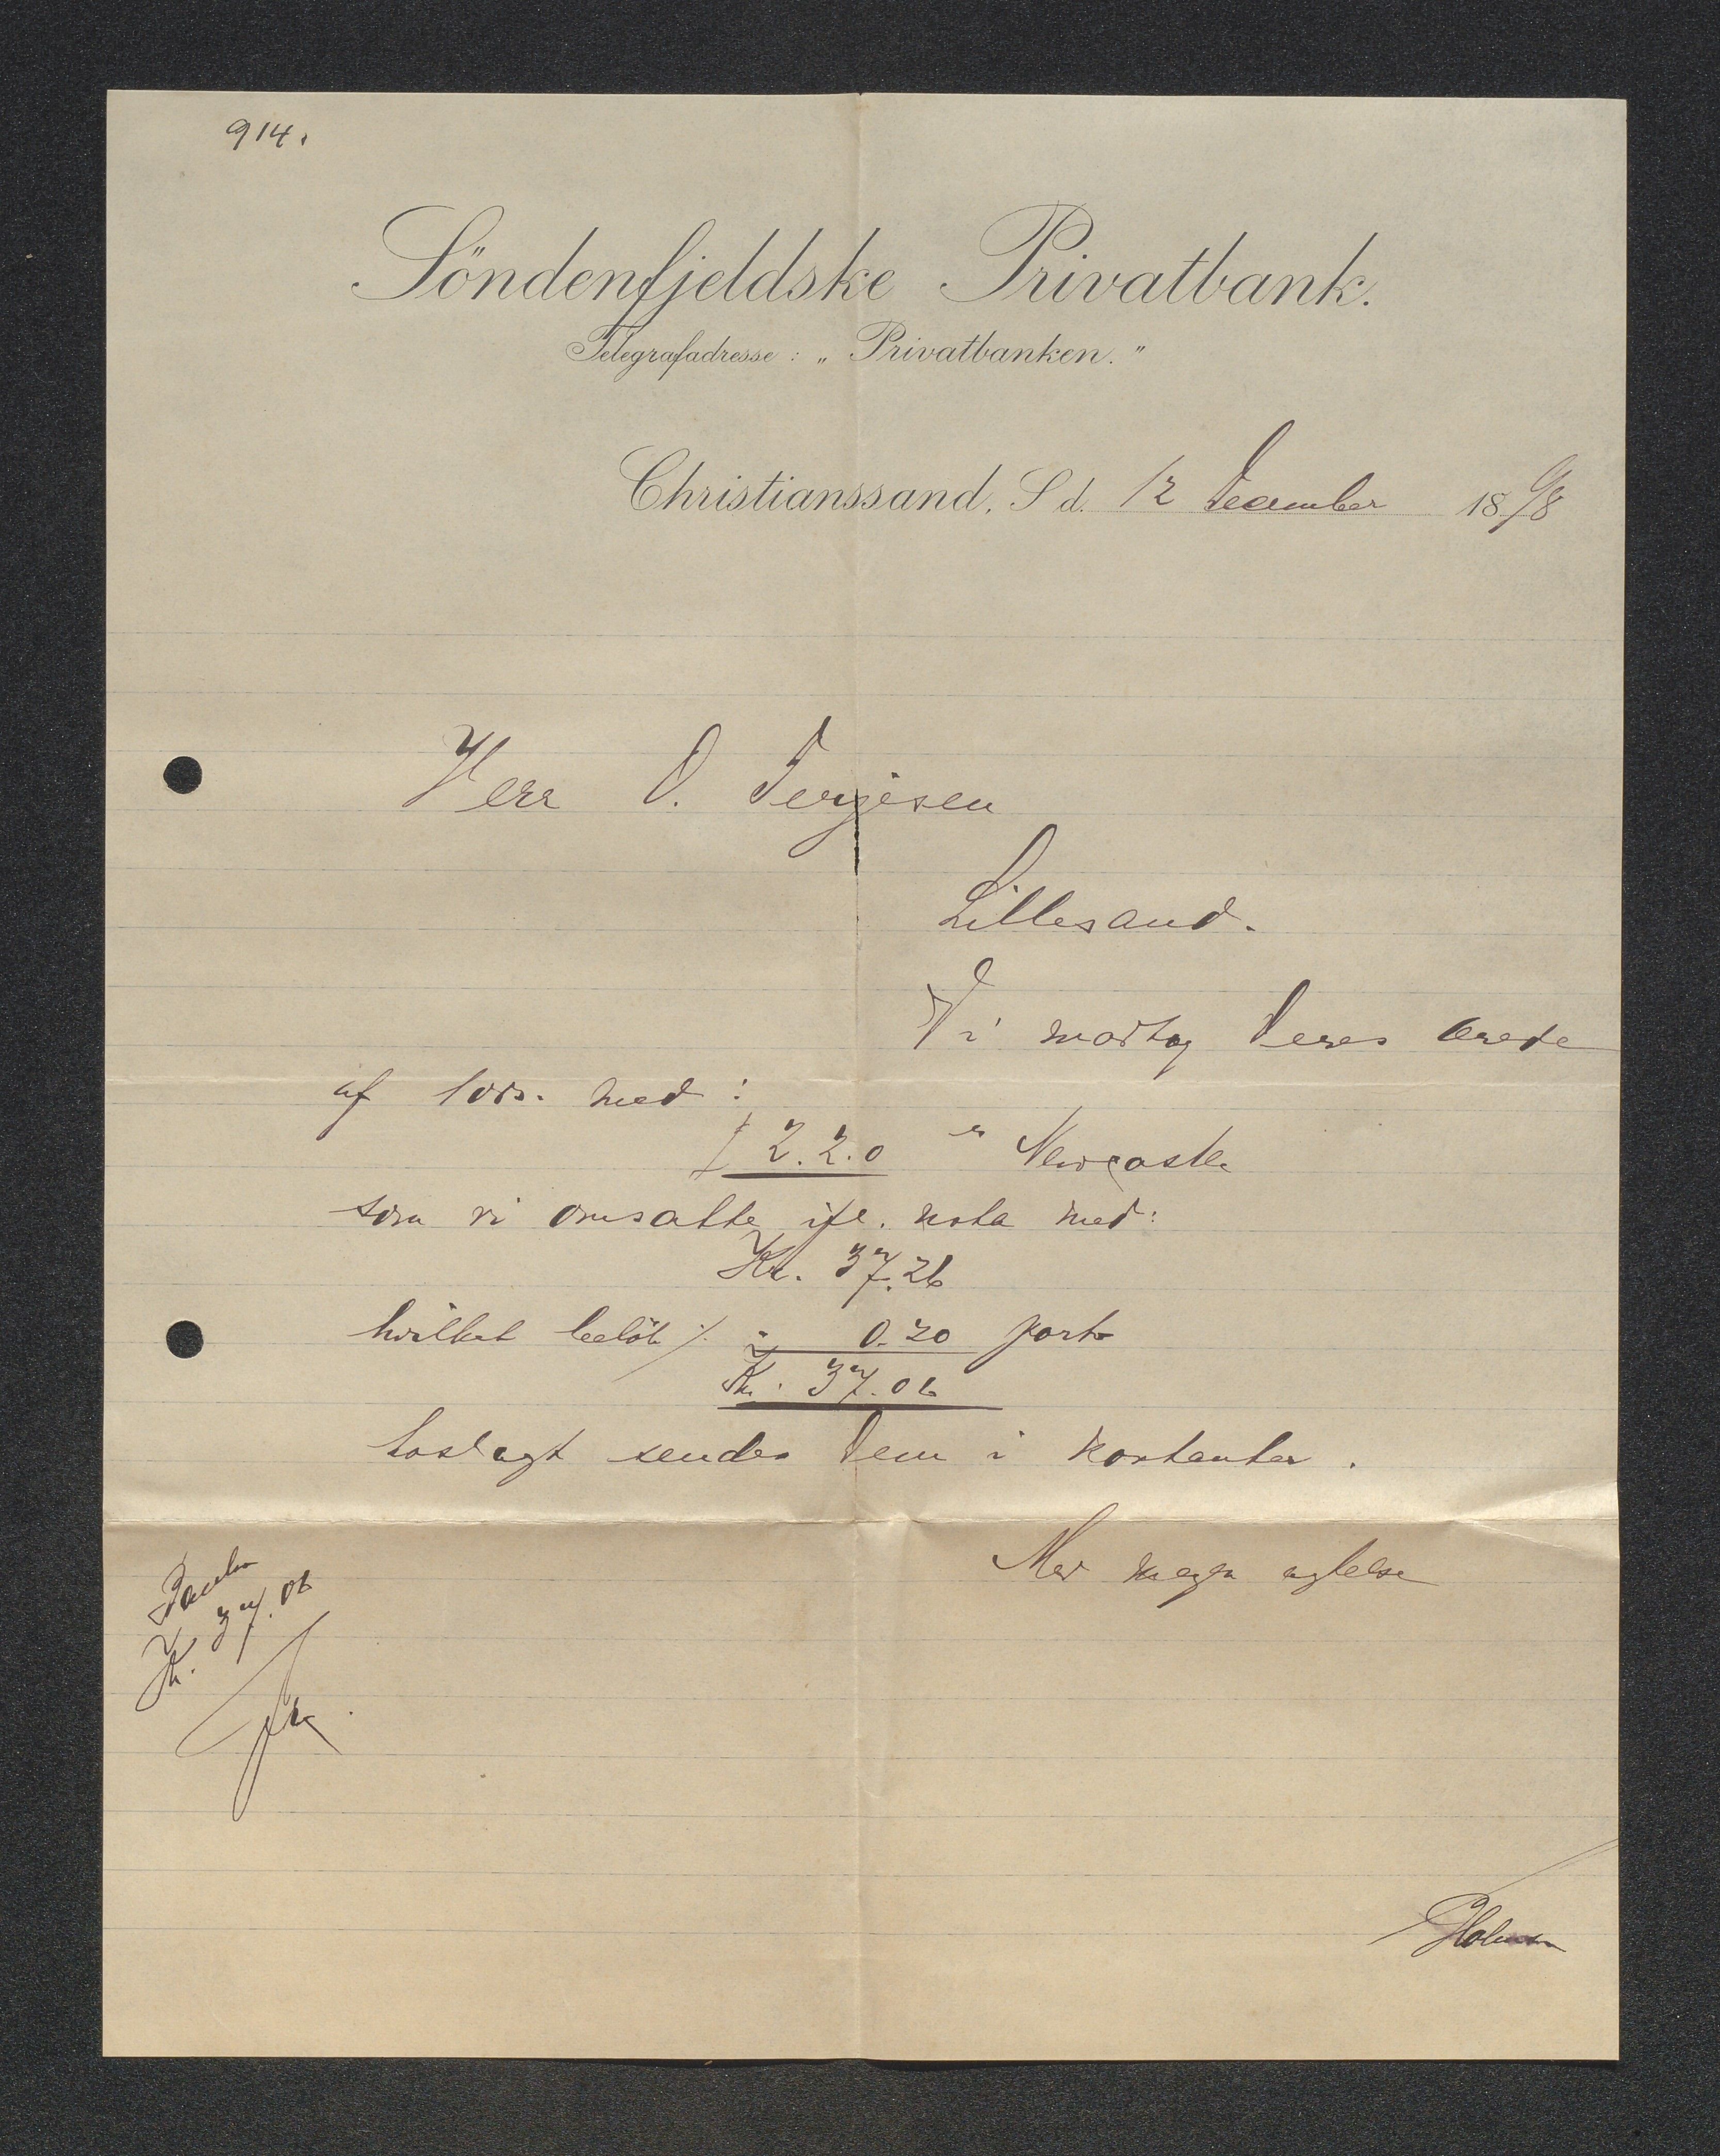 914.
Söndenfjeldske Privatbank.
Telegrafadresse: „Privatbanken."
Christianssand, S d. 12 December 1898
Herr O. Terjesen
Lillesand.
Vi modtog Deres ærede
af 10ds. med:
£ 2.2.0 Newcastle
som vi omsatte ifl. nota med:
Kr. 37.26
hvilket beløb ÷ " 0.20 porto
Kr. 37.06
hoslagt sendes Dem i kontanter.
Med megen agtelse
Kr. 37.06